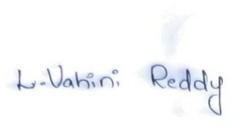 L.Vahini Reddy